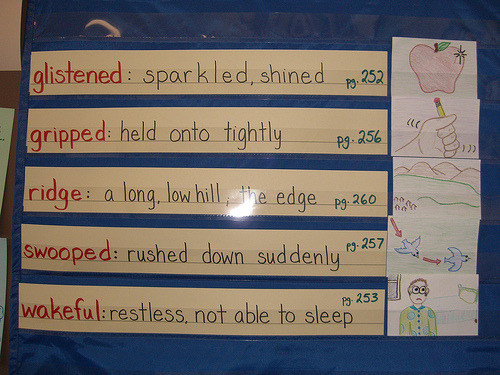 glistened: sparkled, shined pg. 252
gripped: held onto tightly pg. 256
ridge: a long, low hill; the edge pg. 260
swooped: rushed down suddenly pg. 257
wakeful: restless, not able to sleep pg. 253